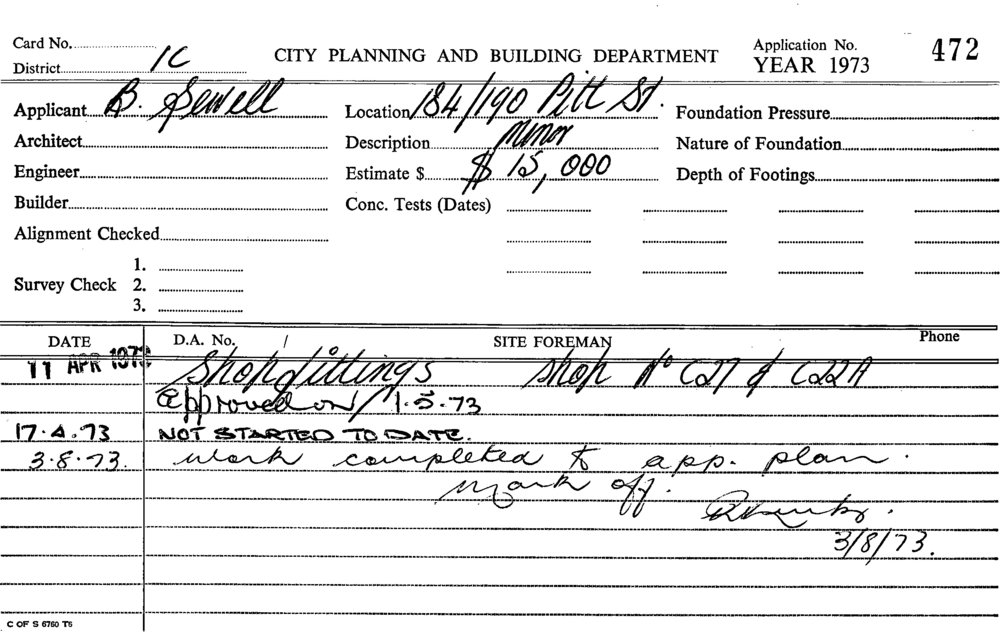 Card No.
District 1C
CITY PLANNING AND BUILDING DEPARTMENT
Application No. 472
YEAR 1973
Applicant B. Sewell
Location 184/190 Pitt St.
Foundation Pressure
Architect
Description Minor
Nature of Foundation
Engineer
Estimate $ $ 15,000
Depth of Footings
Builder
Conc. Tests (Dates)
Alignment Checked
Survey Check
1.
2.
3.
DATE
D.A. No. /
SITE FOREMAN
Phone
11 APR 1973 Shopfittings Shop No C27 & C22A
Approved on 1.5.73
17.4.73 NOT STARTED TO DATE.
3.8.73. work completed to app. plan.
Mark off.
3/8/73.
C OF S 6760 T6